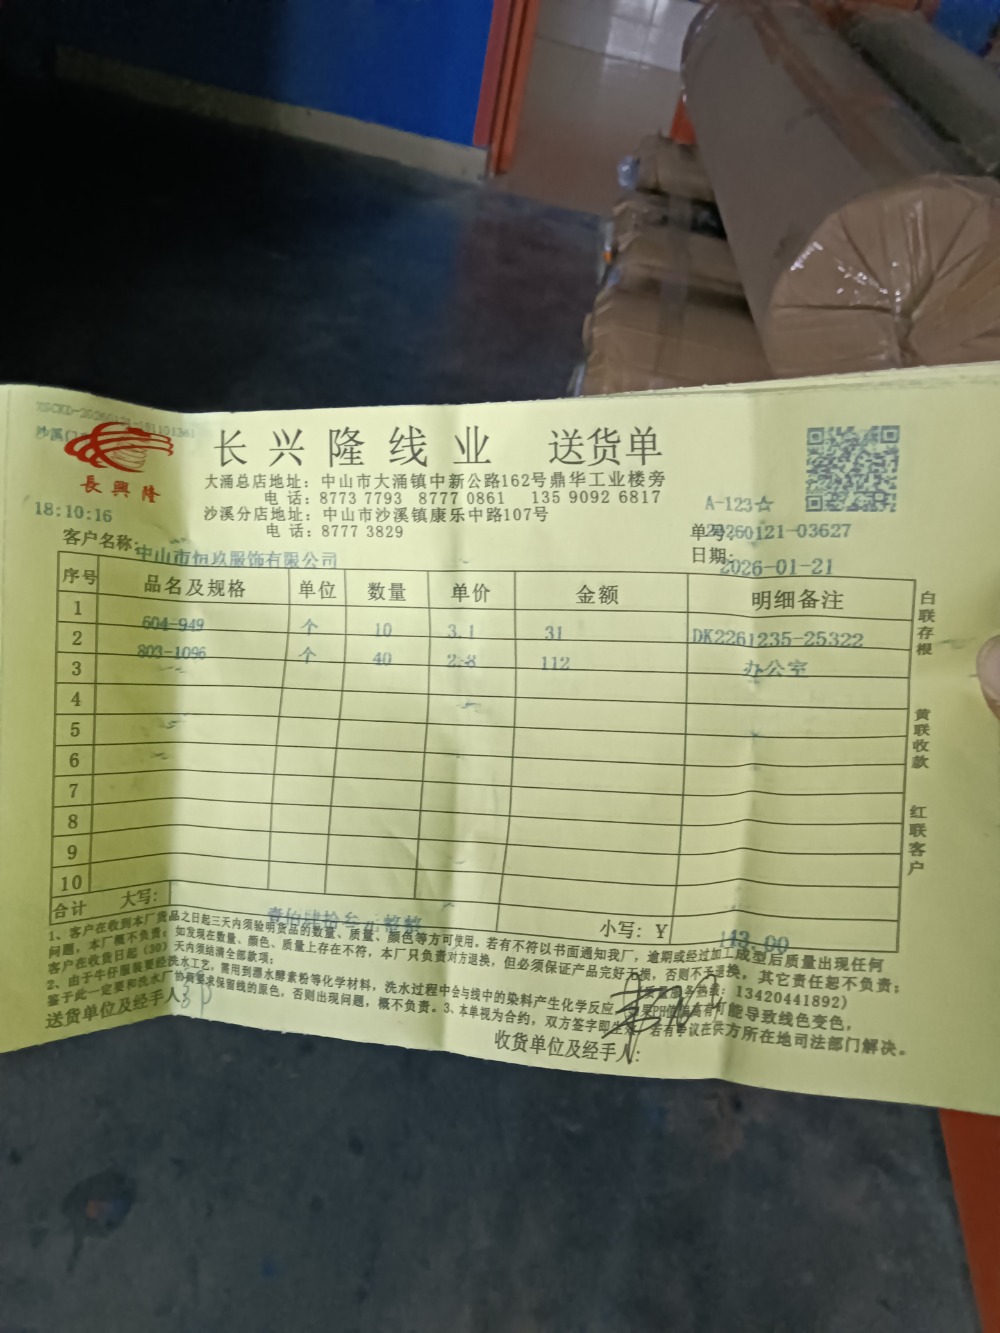 YSCKD-20260121-181101361
長興隆
长兴隆线业 送货单
大涌总店地址：中山市大涌镇中新公路162号鼎华工业楼旁
电 话：8773 7793 8777 0861 135 9092 6817
沙溪分店地址：中山市沙溪镇康乐中路107号
电 话：8777 3829
18:10:16
A-123☆
单号：20260121-03627
日期：2026-01-21
客户名称：中山市恒玖服饰有限公司
序号 品名及规格 单位 数量 单价 金额 明细备注
1 604-949 个 10 3.1 31 DK2261235-25322
2 803-1096 个 40 2.8 112 办公室
3
4
5
6
7
8
9
10
合计 大写：壹佰肆拾叁元整 小写：¥ 143.00
1、客户在收到本厂货品之日起三天内须验明货品的数量、质量、颜色等方可使用。若有不符以书面通知我厂，逾期或经过加工成型后质量出现任何
问题，本厂概不负责；如发现在数量、颜色、质量上存在不符，本厂只负责对方退换，但必须保证产品完好无损，否则不予退换。其它责任恕不负责；
客户在收货日起（30）天内须结清全部款项；
质量服务热线：13420441892)
2、由于牛仔服装要经洗水工艺，需用到漂水酵素粉等化学材料，洗水过程中会与线中的染料产生化学反应，如果PH值偏高有可能导致线色变色，
鉴于此一定要和洗水厂协商要求保留线的原色，否则出现问题，概不负责。3、本单视为合约，双方签字即生效，若有争议在供方所在地司法部门解决。
送货单位及经手人：
收货单位及经手人：
白联存根
黄联收款
红联客户